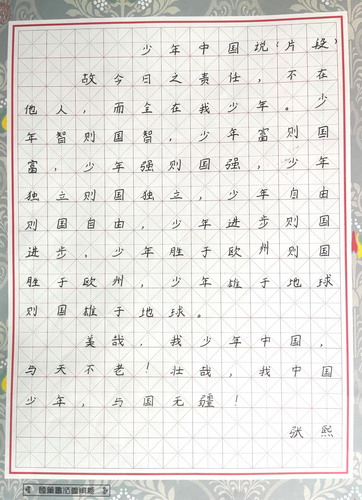 少年中国说（片段）
故今日之责任，不在
他人，而全在我少年。少
年智则国智，少年富则国
富，少年强则国强，少年
独立则国独立，少年自由
则国自由，少年进步则国
进步，少年胜于欧州则国
胜于欧州，少年雄于地球
则国雄于地球。
美哉，我少年中国，
与天不老！壮哉，我中国
少年，与国无疆！
张熙